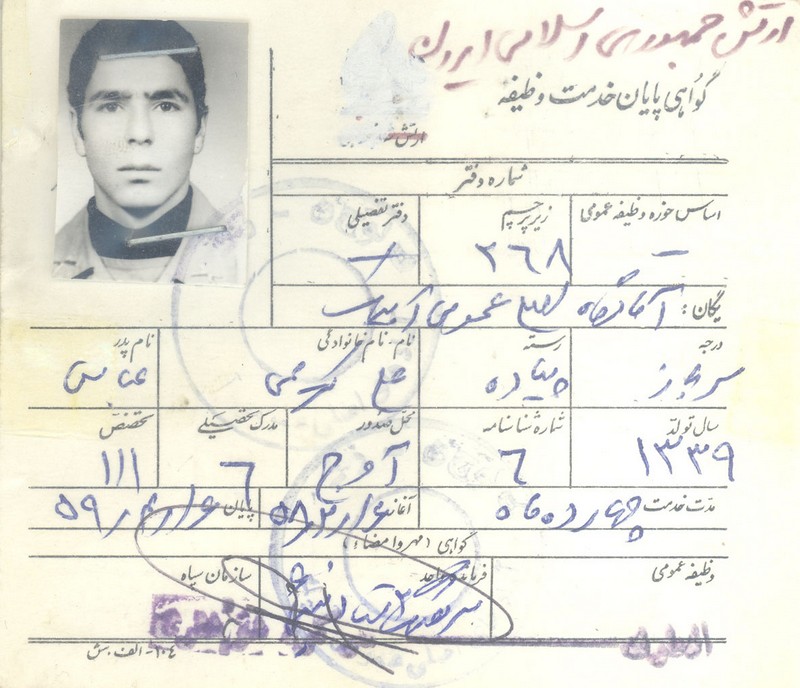 ارتش جمهوری اسلامی ایران
گواهی پایان خدمت وظیفه
ارتش
شماره دفتر
اساس حوزه وظیفه عمومی زیر پرچم دفتر تفصیلی
– ۲۶۸ –
یگان: عمومی
درجه رسته نام - نام خانوادگی نام پدر
سرباز پیاده علی کرمی عباس
سال تولد شماره شناسنامه محل صدور مدرک تحصیلی تخصص
۱۳۳۹ ۶ آوج ۶ ۱۱۱
مدت خدمت چهارده ماه آغاز پایان
گواهی (مهر و امضاء)
وظیفه عمومی فرمانده واحد سازمان سپاه
۱۰۴- الف. ش